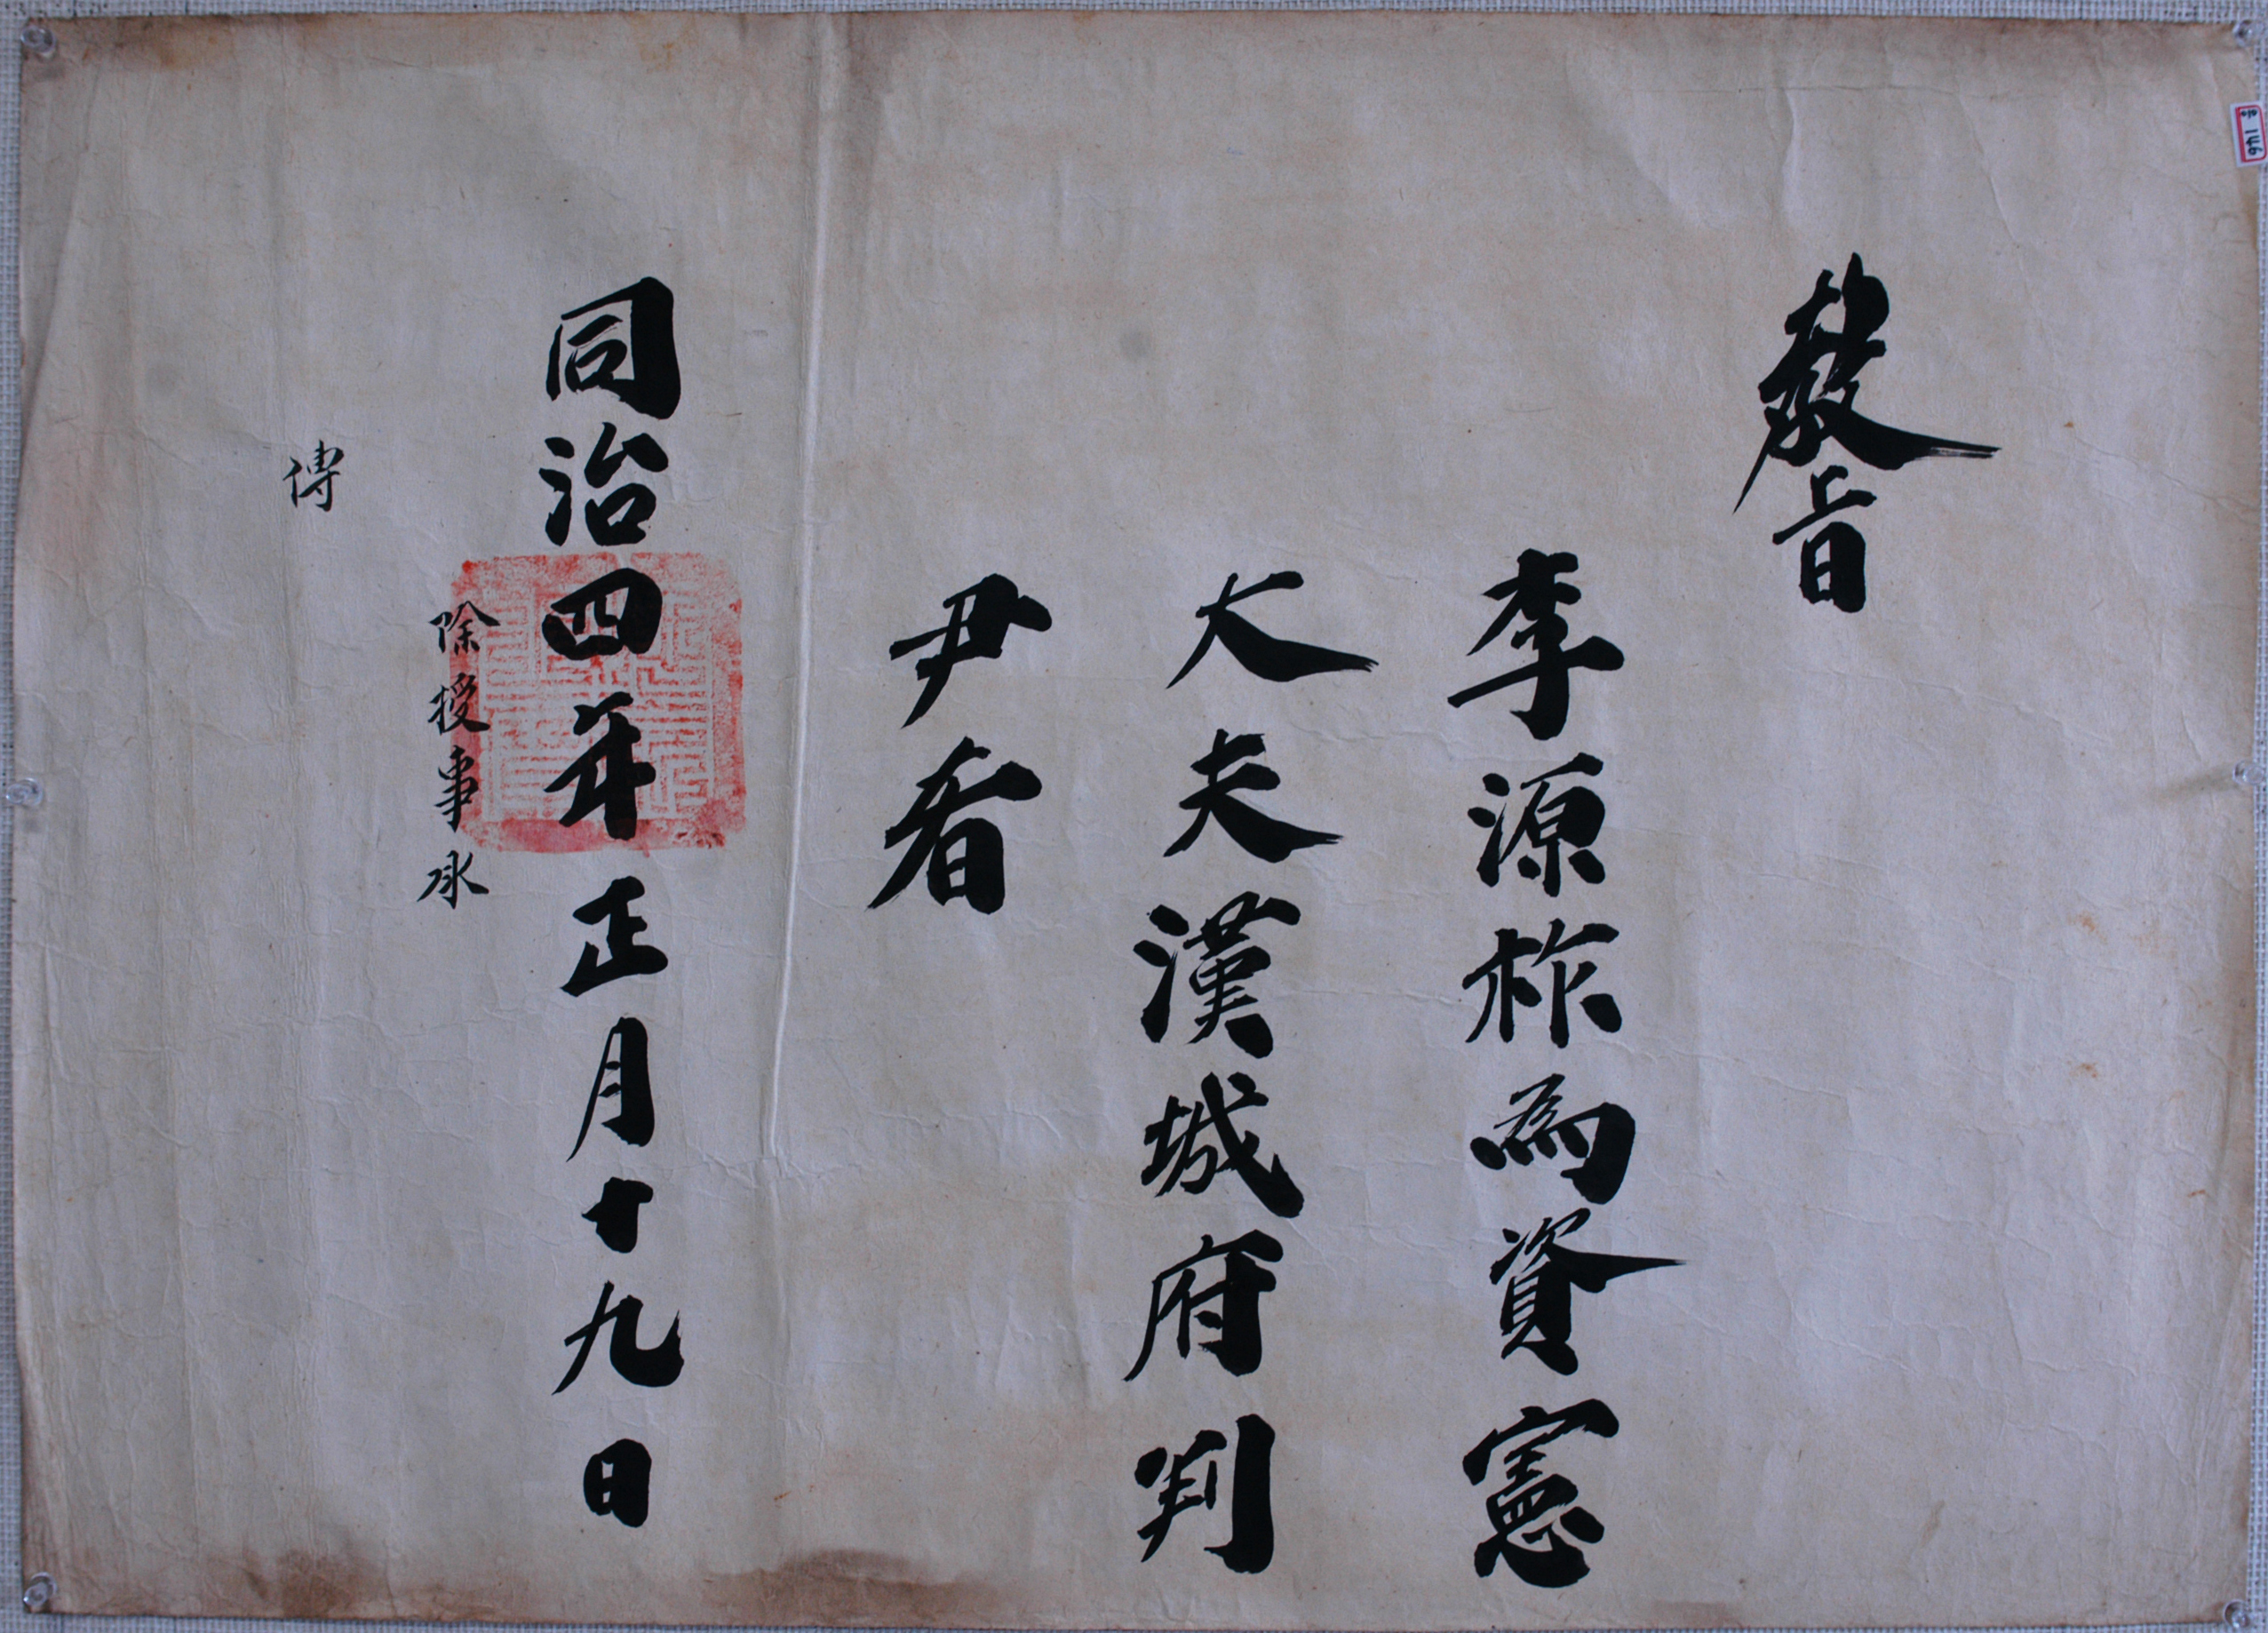 教旨
李源祚為資憲
大夫漢城府判
尹者
同治四年正月十九日
除授事承
傳
146